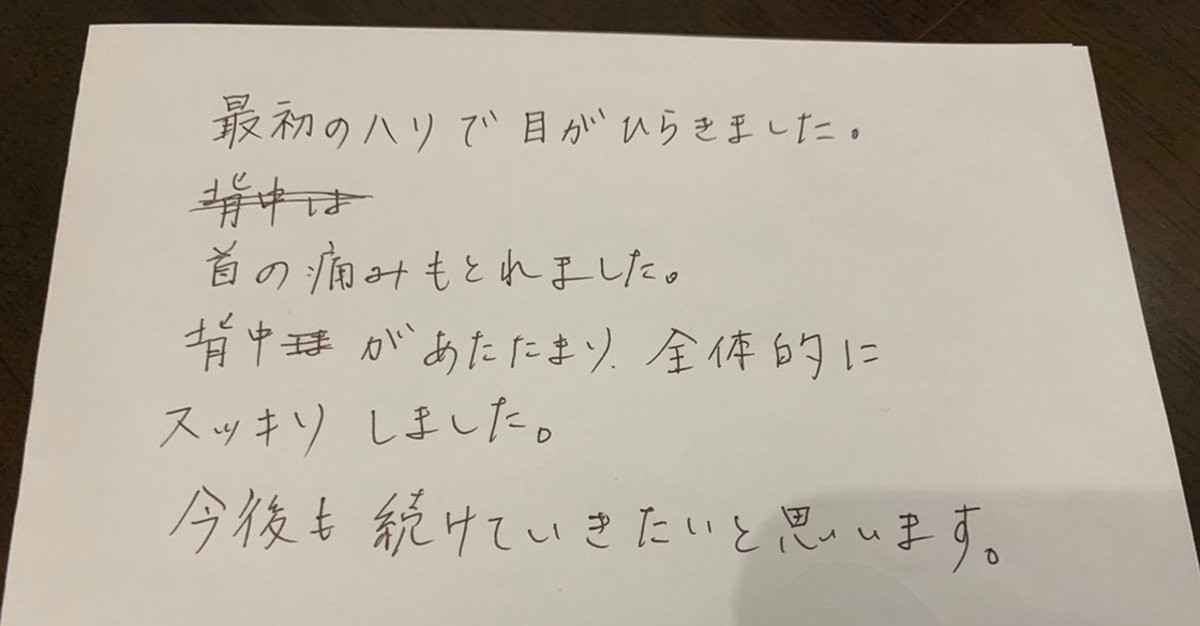 最初のハリで目がひらきました。
背中は
首の痛みもとれました。
背中があたたまり、全体的に
スッキリしました。
今後も続けていきたいと思います。